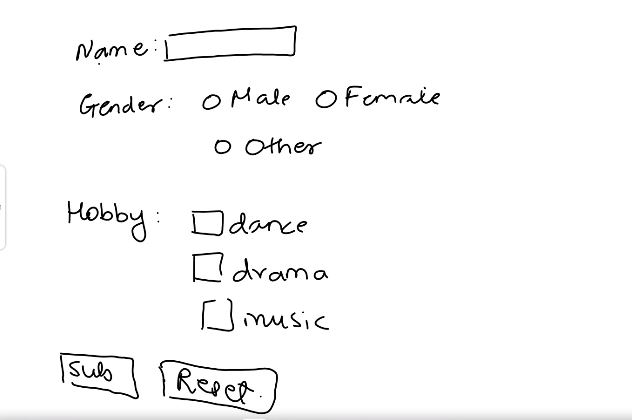 Name:
Gender: Male Female
Other
Hobby: dance
drama
music
Sub Reset